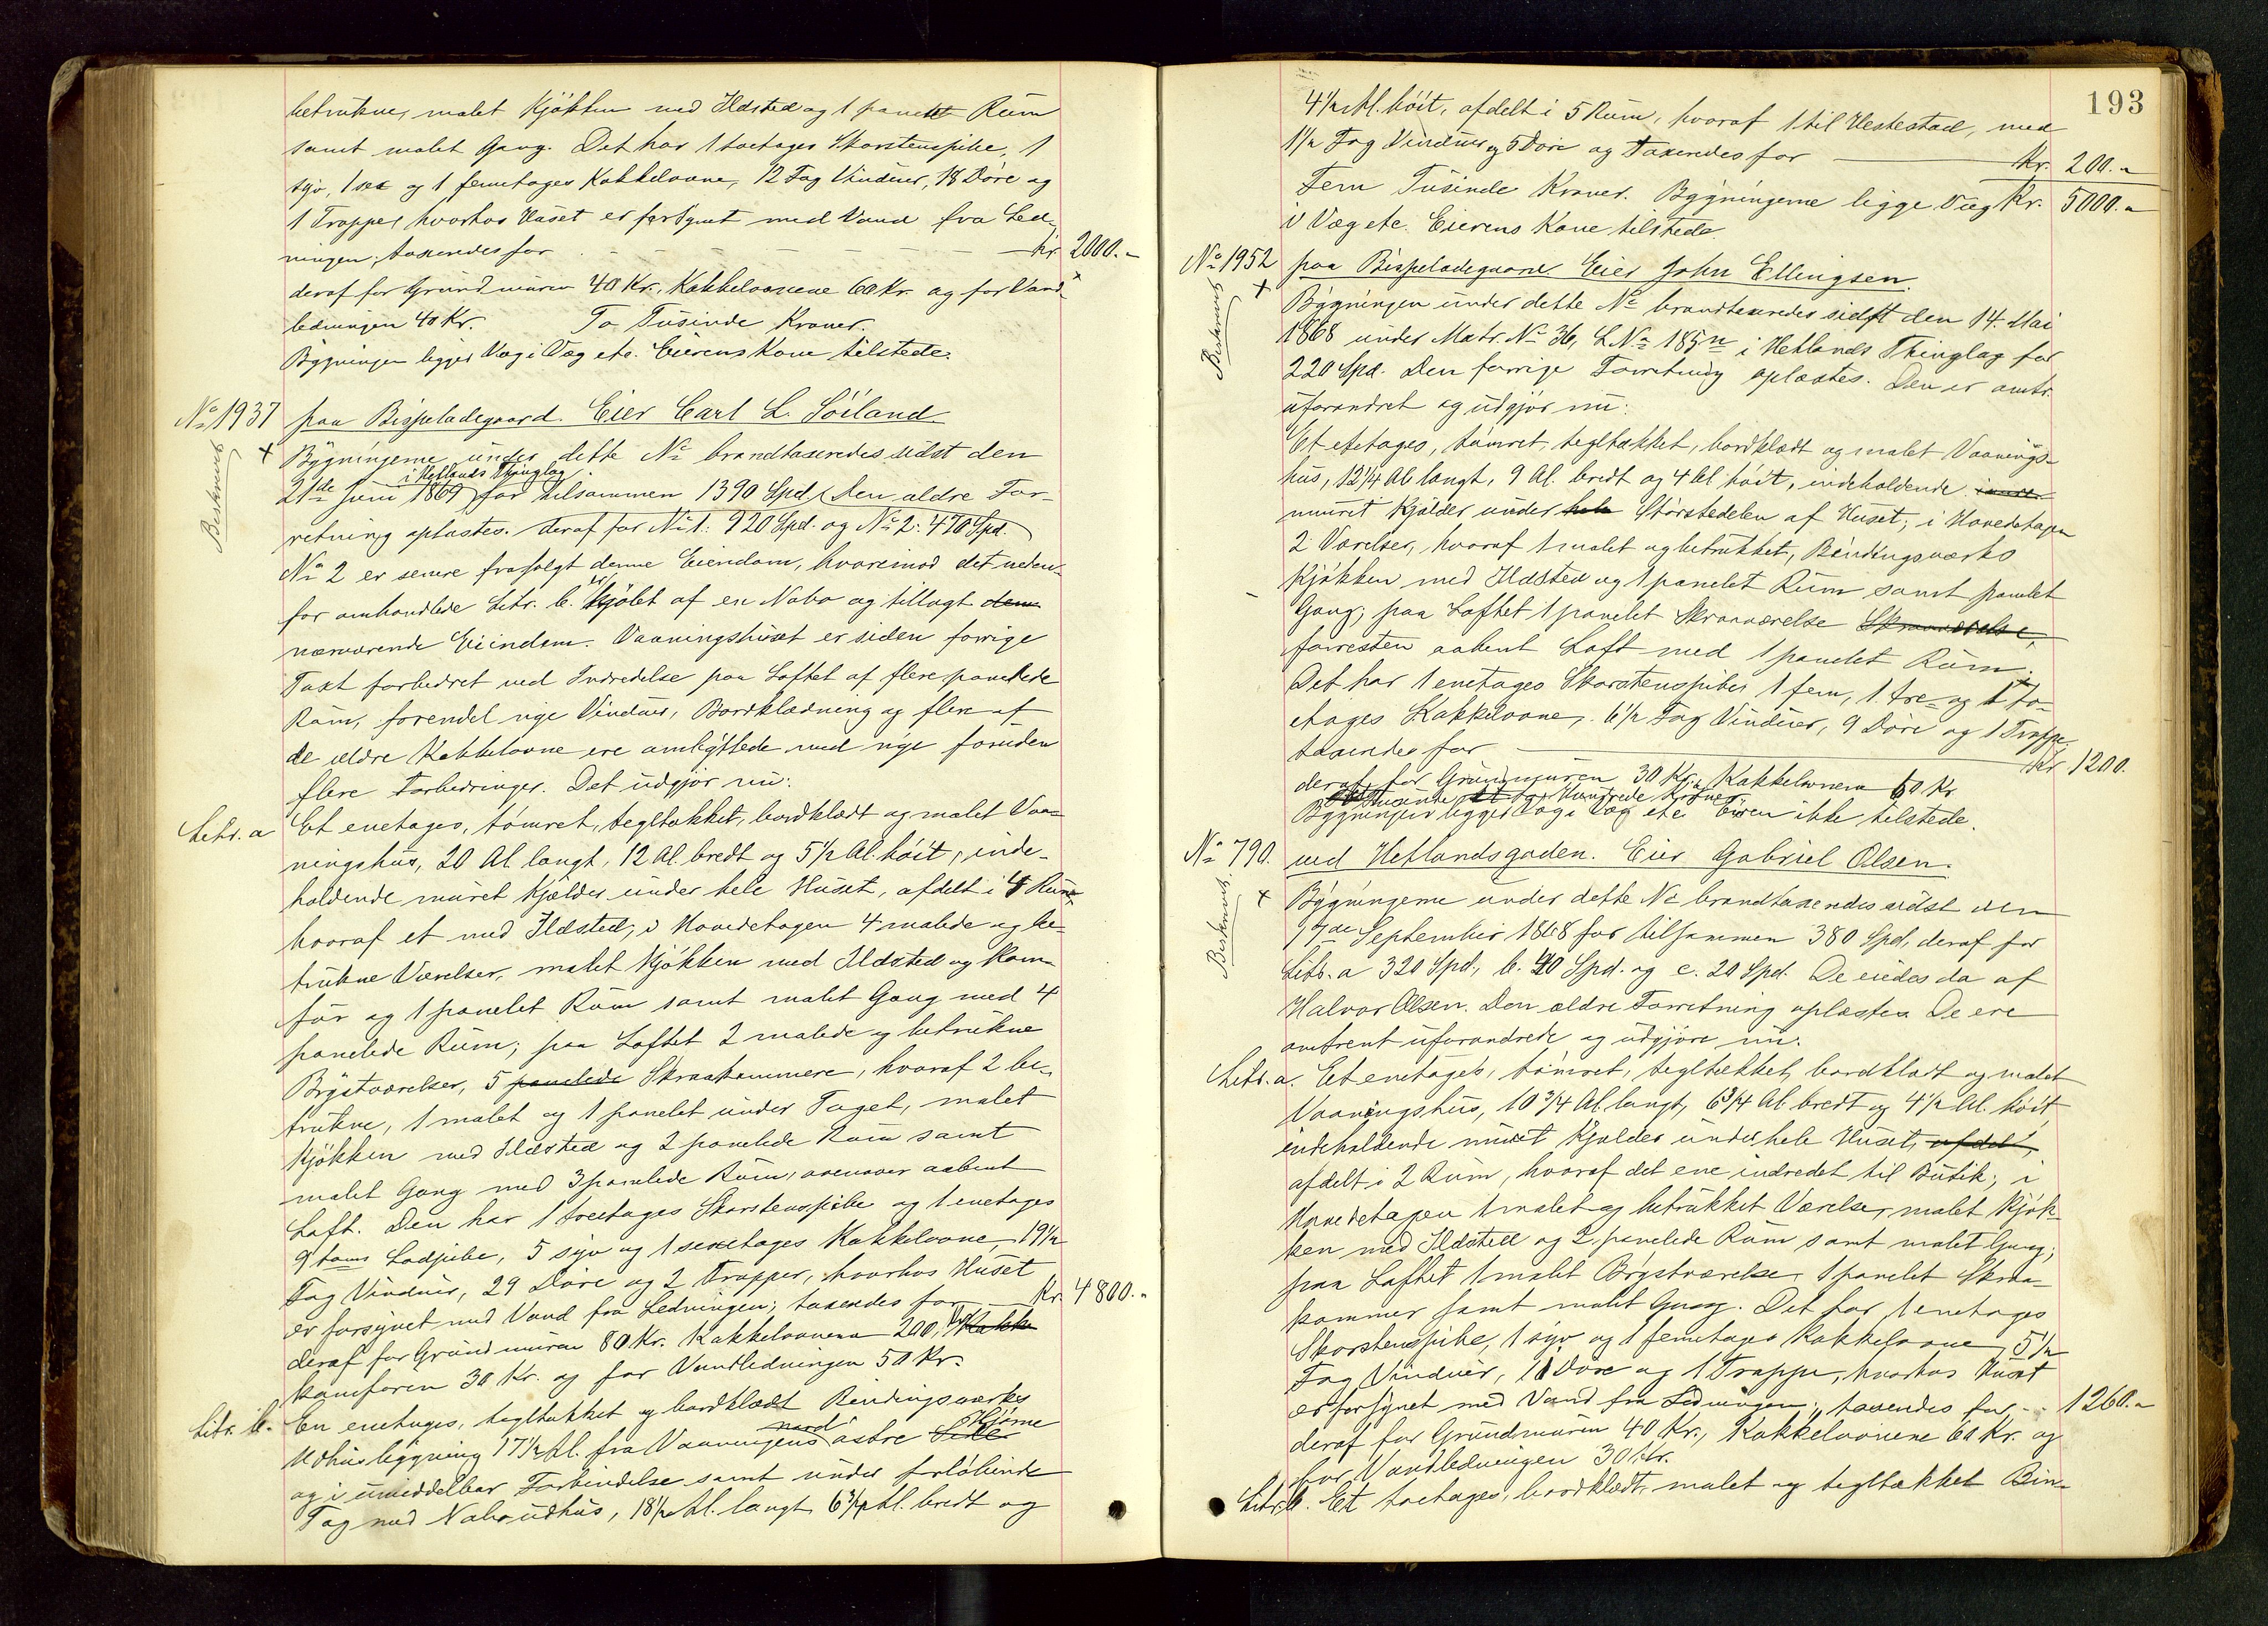 betrukne, malet Kjökken med Ildsted og 1 panelet Rum
samt malet Gang. Det har 1 toetages Skorstenspibe, 1
syv, 1 sex og 1 femetages Kakkelovne, 12 Fag Vinduer, 18 Döre og
1 Trappe, hvorhos Huset er forsynt med Vand fra Led-
ningen; taxeredes for Kr. 2000.-
deraf for Grundmuren 40 Kr., Kakkelovnene 60 Kr. og for Vand-
ledningen 40 Kr. To Tusinde Kroner.
Bygningen ligger Væg i Væg etc. Eierens Kone tilstede.
No 1937 paa Bispeladegaard. Eier Carl L. Söiland.
Beskrevet
Bygningerne under dette No brandtaxeredes sidst den
i Hetlands Thinglag
21de Juni 1869 for tilsammen 1390 Spd. Den ældre For-
retning oplæstes. deraf for No 1: 920 Spd. og No 2: 470 Spd.
No 2 er senere frasolgt denne Eiendom, hvorimod det neden-
for omhandlede Litr. b. er kjöbt af en Nabo og tillagt dem
nærværende Eiendom. Vaaningshuset er siden forrige
Taxt forbedret ved Indredelse paa Loftet af flere panelede
Rum, forendel nye Vinduer, Bordklædning og flere af
de ældre Kakkelovne ere ombyttede med nye foruden
flere Forbedringer. Det udgjör nu:
Litr. a Et enetages, tömret, tegltækket, bordklædt og malet Vaa-
ningshus, 20 Al. langt, 12 Al. bredt og 5 1/2 Al. höit, inde-
holdende muret Kjælder under hele Huset, afdelt i 4 Rum
hvoraf et med Ildsted; i Hovedetagen 4 malede og be-
trukne Værelser, malet Kjökken med Ildsted og Kom-
för og 1 panelet Rum samt malet Gang med 4
panelede Rum; paa Loftet 2 malede og betrukne
Brystværelser, 5 panelede Skraakammere, hvoraf 2 be-
trukne, 1 malet og 1 panelet under Taget, malet
Kjökken med Ildsted og 2 panelede Rum samt
malet Gang med 3 panelede Rum, ovenover aabent
Loft. Den har 1 treetages Skorstenspibe og 1 enetages
9 toms Lodpibe, 5 syv og 1 sexetages Kakkelovne, 19 1/2
Fag Vinduer, 29 Döre og 2 Trapper, hvorhos Huset
er forsynet med Vand fra Ledningen; taxeredes for Kr. 4800.-
deraf for Grundmuren 80 Kr. Kakkelovnene 200, Kakke
komforen 30 Kr. og for Vandledningen 50 Kr.
Litr. b. En enetages, tegltækket og bordklædt Bindingsværks
nord Hjörne
Udhusbygning 17 1/2 Al. fra Vaaningens östre Side
og i umiddelbar Forbindelse samt under forlöbende
Tag med Nabo udhus, 18 1/2 Al. langt 6 3/4 Al. bredt og
193
4 1/2 Al. höit, afdelt i 5 Rum, hvoraf 1 til Hestestald, med
1 1/2 Fag Vinduer og 5 Döre og taxeredes for Kr. 200.-
Fem Tusinde Kroner. Bygningerne ligge Væg Kr. 5000.-
i Væg etc. Eierens Kone tilstede.
No 1952 paa Bispeladegaard Eier John Ellingsen.
Beskrevet
Bygningen under dette No brandtaxeredes sidst den 14. Mai
1868 under Matr. No 36, L No 185n i Hetlands Thinglag for
220 Spd. Den forrige Forretning oplæstes. Den er omtr.
uforandret og udgjör nu:
Et etetages, tömret, tegltækket, bordklædt og malet Vaanings-
hus, 12 1/4 Al. langt, 9 Al. bredt og 4 Al höit, indeholdende
muret Kjælder under hele Störstedelen af Huset; i Hovedetagen
2 Værelser, hvoraf 1 malet og betrukket, Bindingsværks
Kjökken med Ildsted og 1 panelet Rum samt panelet
Gang; paa Loftet 1 panelet Skraaværelse Skraaværelse,
forresten aabent Loft med 1 panelet Rum.
Det har 1 enetages Skorstenspibe, 1 fem, 1 tre- og 1 to-
etages Kakkelovne, 6 1/2 Fag Vinduer, 9 Döre og 1 Trappe,
taxeredes for Kr. 1200.
deraf for Grundmuren 30 Kr., Kakkelovnene 60 Kr
Et Tusinde et to Hundrede Kroner
Bygningen ligger Væg i Væg etc. Eieren ikke tilstede.
No 790. ved Hetlandsgaden. Eier Gabriel Olsen.
Beskrevet
Bygningerne under dette No brandtaxeredes sidst den
17de September 1868 for tilsammen 380 Spd, deraf for
Litr. a 320 Spd., b. 40 Spd. og c. 20 Spd. De eiedes da af
Halvor Olsen. Den ældre Forretning oplæstes. De ere
omtrent uforandrede og udgjöre nu.
Litr. a. Et enetages, tömret, tegltækket, bordklædt og malet
Vaaningshus, 10 3/4 Al. langt, 6 3/4 Al. bredt og 4 1/2 Al. höit
indeholdende muret Kjælder under hele Huset, afdelt,
afdelt i 2 Rum, hvoraf det ene indredet til Butik; i
Hovedetagen 1 malet og betrukket Værelse, malet Kjök-
ken med Ildsted og 2 panelede Rum samt malet Gang;
paa Loftet 1 malet Brystværelse, 1 panelet Skraa-
kammer samt malet Gang. Det har 1 enetages
Skorstenspibe, 1 syv og 1 femetages Kakkelovne, 5 1/2
Fag Vinduer, 11 Döre og 1 Trappe, hvorhos Huset
er forsynet med Vand fra Ledningen; taxeredes for 1260.-
deraf for Grundmuren 40 Kr., Kakkelovnene 60 Kr. og
for Vandledningen 30 Kr.
Litr. b. Et toetages, bordklædt, malet og tegltækket Bin-